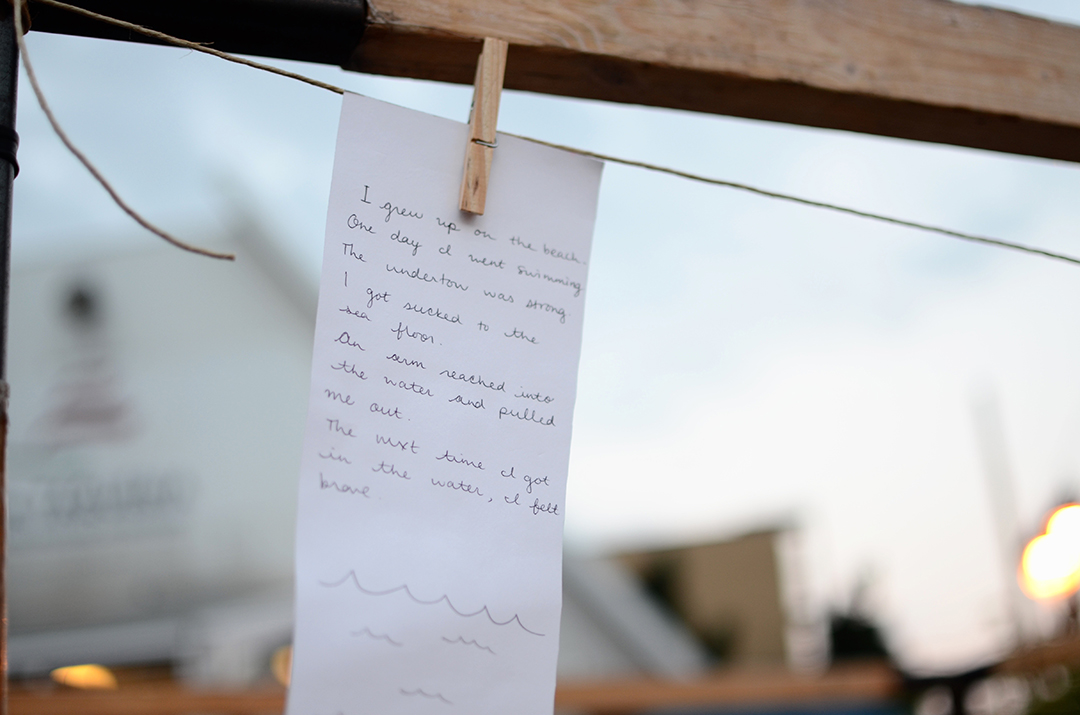 I grew up on the beach.
One day I went swimming
The undertow was strong.
I got sucked to the
sea floor.
An arm reached into
the water and pulled
me out.
The next time I got
in the water, I felt
brave.